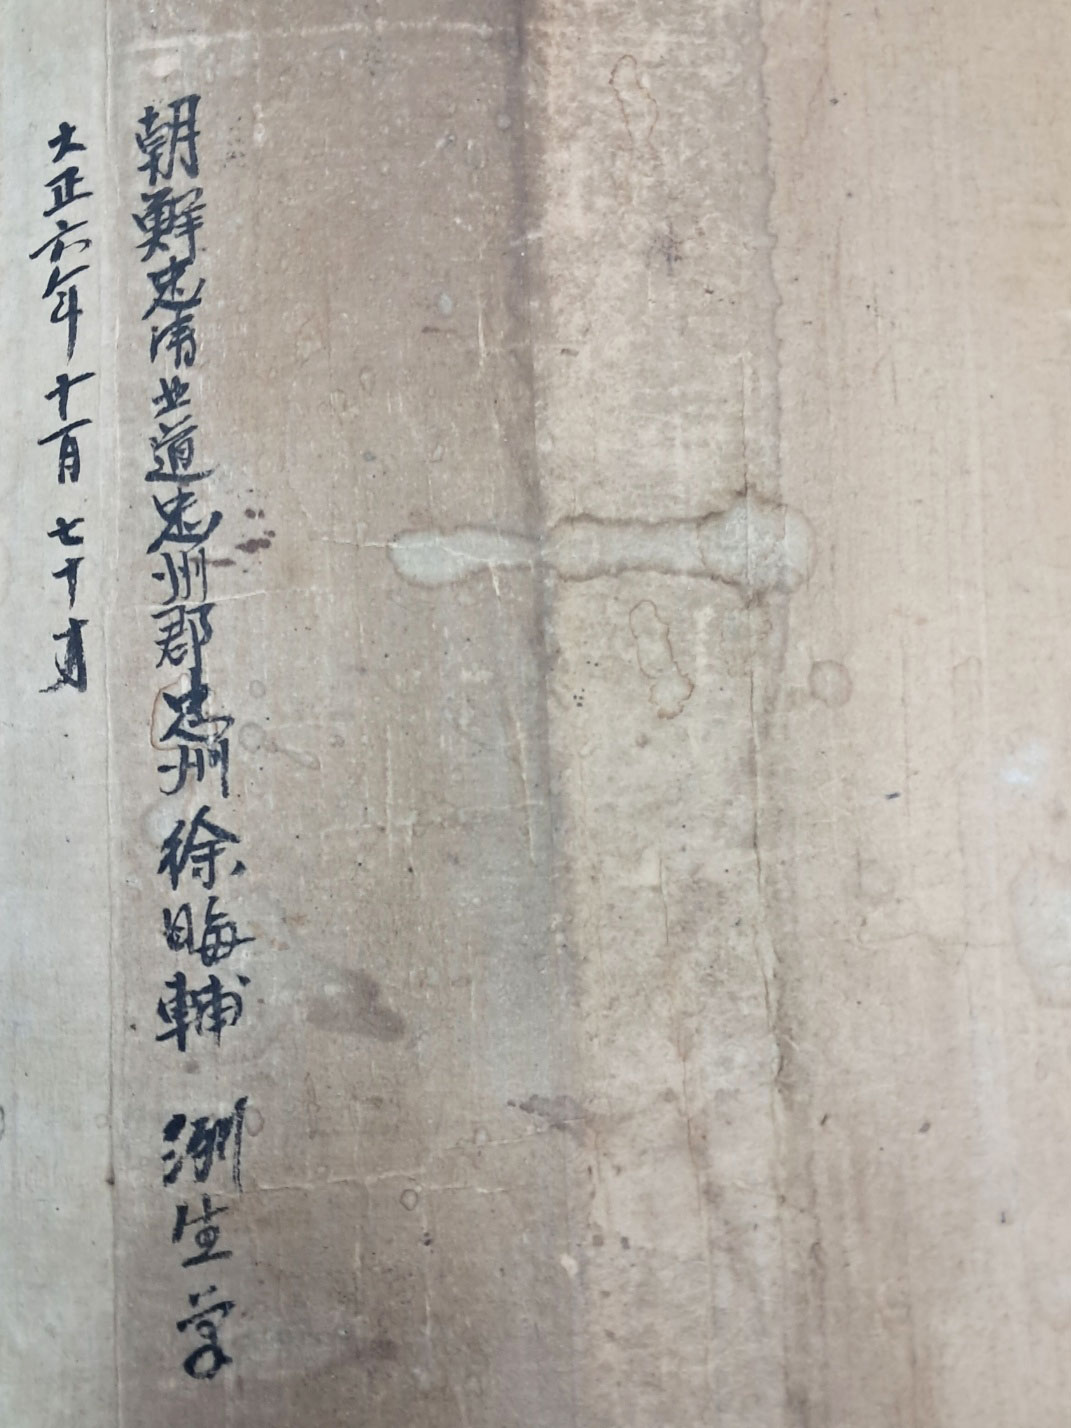 朝鮮忠清北道忠州郡忠州 徐晦輔 洌生学
大正六年 十一月 七十